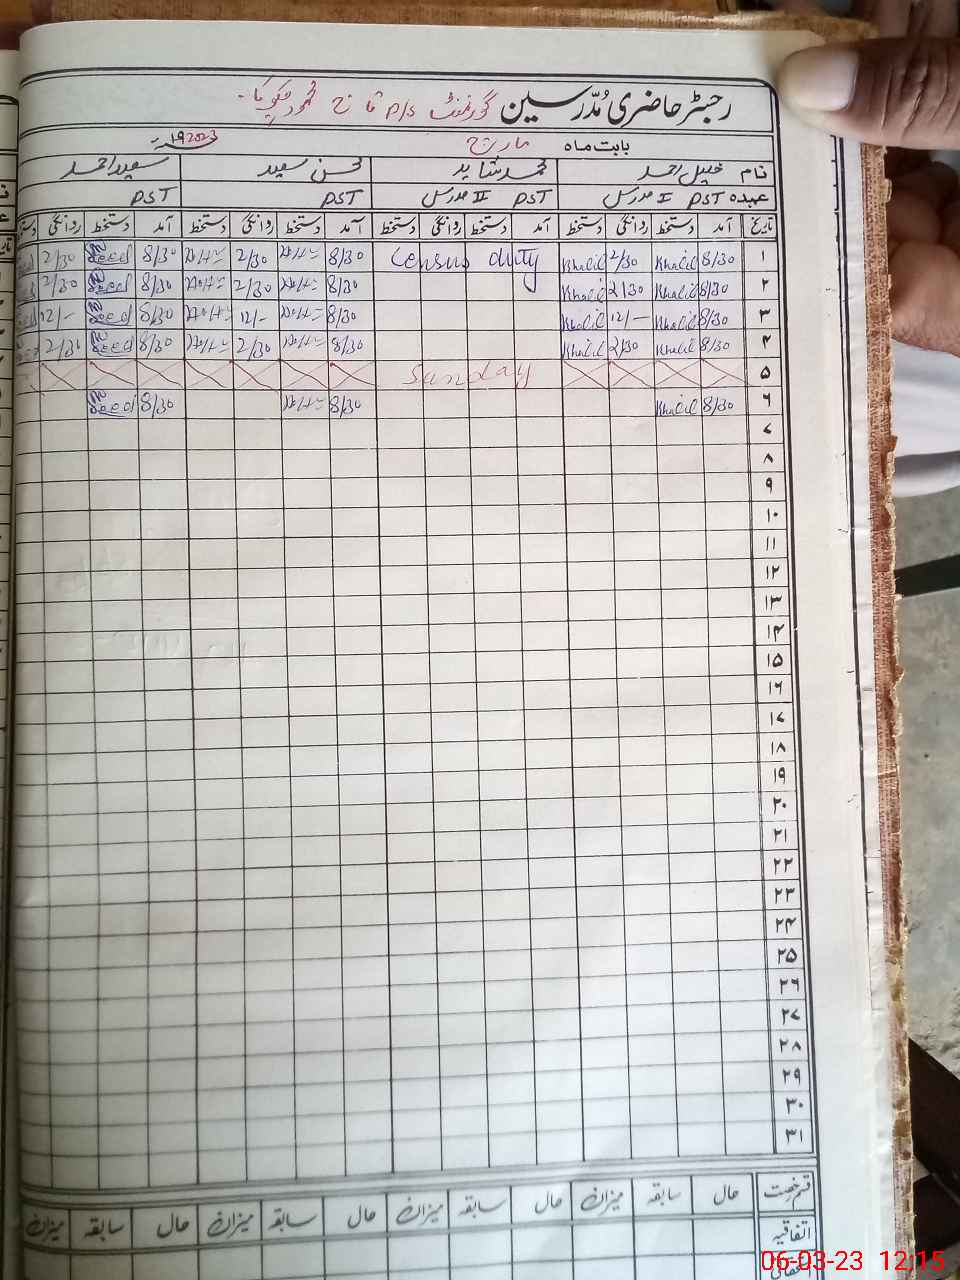 رجسٹر حاضری مُدّرسین گورنمنٹ P/S
بابت ماہ مارچ ۱۹2023
نام خلیل احمد محمد شاہد محسن سعید سعید احمد
عہدہ PST II مدرس PST II مدرس PST PST
تاریخ آمد دستخط روانگی دستخط آمد دستخط روانگی دستخط آمد دستخط روانگی دستخط آمد دستخط روانگی
۱ 8/30 Khalil 2/30 Khalil Census duty 8/30 2/30 8/30 Saeed 2/30
۲ 8/30 Khalil 2/30 Khalil 8/30 2/30 8/30 Saeed 2/30
۳ 8/30 Khalil 12/- Khalil 8/30 12/- 8/30 Saeed 12/-
۴ 8/30 Khalil 2/30 Khalil 8/30 2/30 8/30 Saeed 2/30
۵ Sunday
۶ 8/30 Khalil 8/30 8/30 Saeed
۷
۸
۹
۱۰
۱۱
۱۲
۱۳
۱۴
۱۵
۱۶
۱۷
۱۸
۱۹
۲۰
۲۱
۲۲
۲۳
۲۴
۲۵
۲۶
۲۷
۲۸
۲۹
۳۰
۳۱
قسم رخصت حال سابقہ میزان حال سابقہ میزان حال سابقہ میزان حال سابقہ میزان
اتفاقیہ
06-03-23 12:15